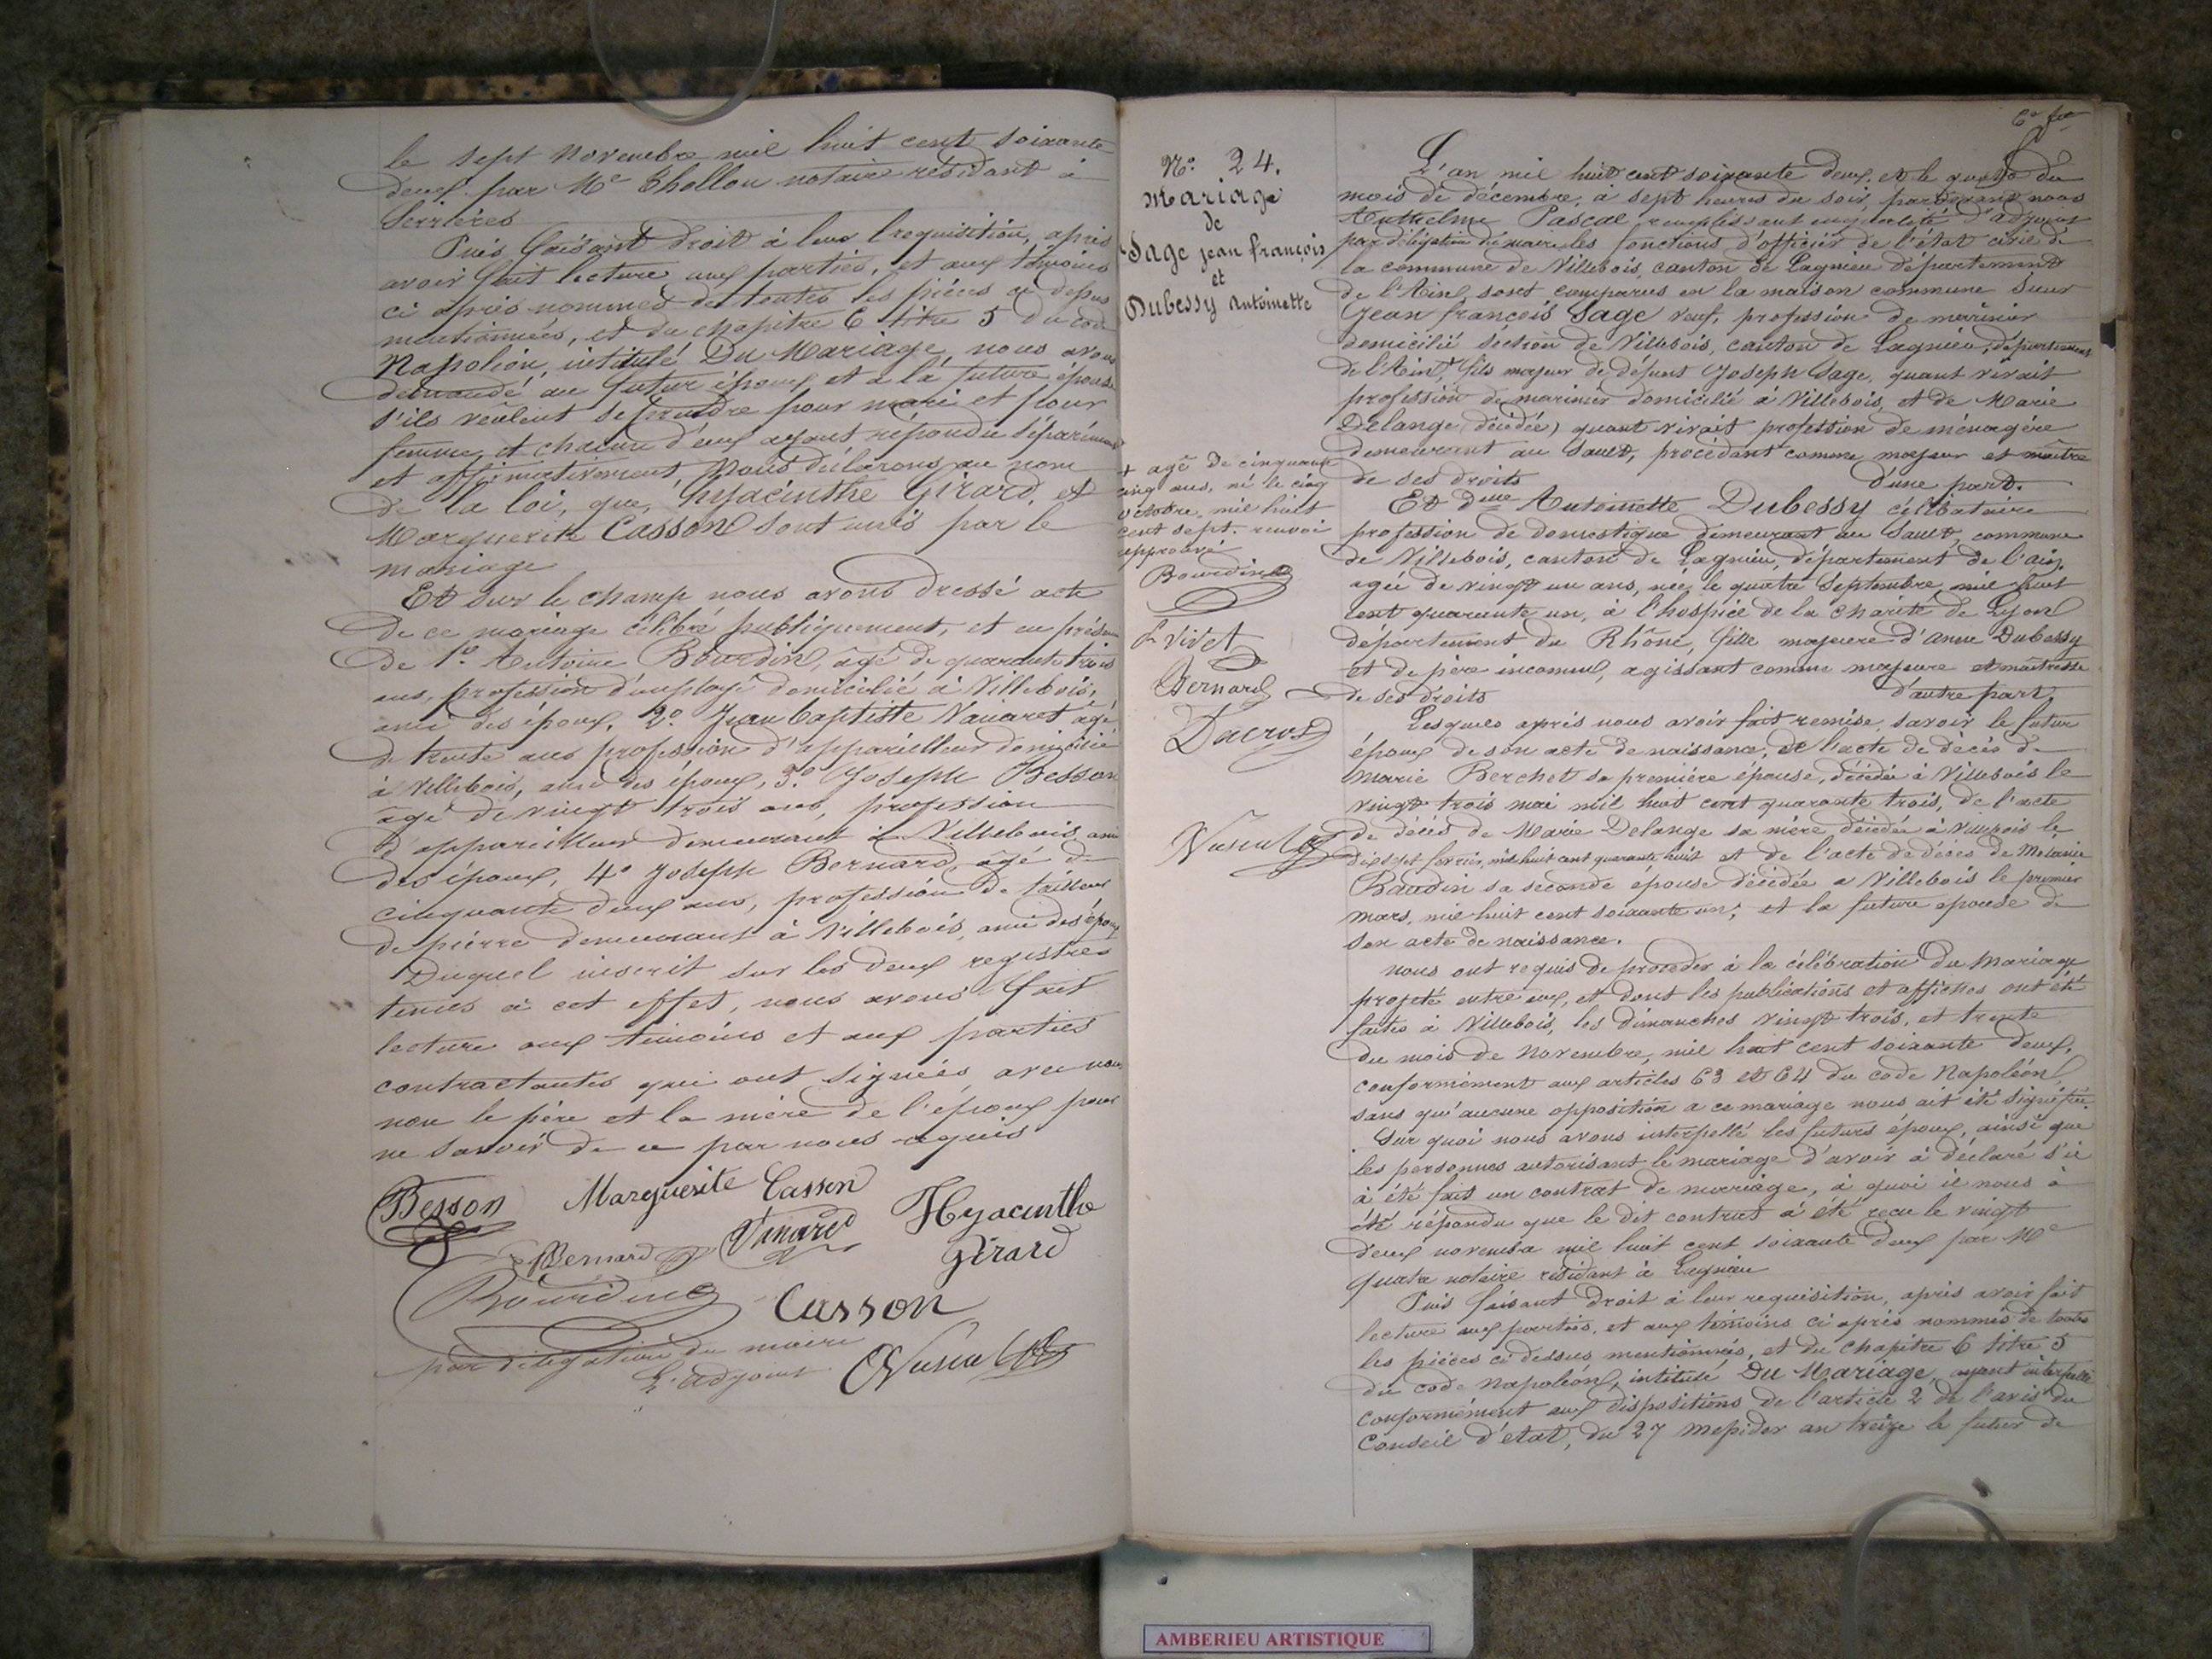 le sept novembre mil huit cent soixante
deux par Me Chollou notaire résidant à
Serrières
Puis faisant droit à leur requisition, après
avoir fait lecture aux parties, et aux témoins
ci après nommés de toutes les pièces ci dessus
mentionnées, et du chapitre 6 titre 5 du code
Napoléon, intitulé Du Mariage, nous avons
demandé au futur époux et à la future épouse
s'ils veulent se prendre pour mari et pour
femme, et chacun d'eux ayant répondu séparément
et affirmativement, Nous déclarons au nom
de la loi, que, hyacinthe Girard, et
Marguerite Casson sont unis par le
mariage
Et sur le champ nous avons dressé acte
de ce mariage célébré publiquement, et en présence
de 1º Antoine Bourdin, âgé de quarante trois
ans, profession d'employé domicilié à Villebois,
ami des époux, 2º Jean baptiste âgé
de trente ans profession d'appareilleur domicilié
à Villebois, ami des époux, 3º Joseph Besson
âgé de vingt trois ans, profession
d'appareilleur demeurant à Villebois, ami
des époux, 4º Joseph Bernard, âgé de
cinquante deux ans, profession de tailleur
de pierre demeurant à Villebois, ami des époux
Duquel inscrit sur les deux registres
tenus à cet effet, nous avons fait
lecture aux témoins et aux parties
contractantes qui ont signées avec nous
non le père et la mère de l'époux pour
ne savoir de ce par nous requis
Besson Marguerite Casson Hyacinthe
Bernard Girard
Bourdin Casson
par délégation du maire
L'adjoint
Nº 24.
Mariage
de
Sage jean françois
et
Dubessy Antoinette
+ agé de cinquante
cinq ans, né le cinq
octobre mil huit
cent sept. renvoi
approuvé
Bourdin
Vivet
Bernard
Ducros
L'an mil huit cent soixante deux, et le quatre du
mois de décembre, à sept heures du soir, pardevant nous
Anthelme Pascal, remplissant en qualité d'adjoint
par délégation du maire les fonctions d'officier de l'état civil de
la commune de Villebois, canton de Lagnieu département
de l'Ain, sont comparus en la maison commune sieur
Jean françois Sage veuf, profession de marinier
domicilié section de Villebois, canton de Lagnieu, département
de l'Ain +, fils majeur de défunt Joseph Sage, quant vivait
profession de marinier domicilié à Villebois, et de Marie
Delange, (décédée) quant vivait profession de ménagère
demeurant au Sault, procédant comme majeur et maître
de ses droits d'une part.
Et Dme Antoinette Dubessy célibataire
profession de domestique demeurant au Sault, commune
de Villebois, canton de Lagnieu, département de l'ain,
agée de vingt un ans, née le quatre Septembre, mil huit
cent quarante un, à l'hospice de la charité de Lyon
département du Rhône, fille majeure d'anne Dubessy
et de père inconnu, agissant comme majeure et maîtresse
de ses droits d'autre part,
Lesquels après nous avoir fait remise, savoir le futur
époux de son acte de naissance, de l'acte de décès de
Marie Berchet sa première épouse, décédée à Villebois le
vingt trois mai mil huit cent quarante trois, de l'acte
de décès de Marie Delange sa mère décédée à Villebois le
dix sept février, mil huit cent quarante huit et de l'acte de décès de Melanie
Baudin sa seconde épouse décédée à Villebois le premier
mars, mil huit cent soixante un; et la future épouse de
son acte de naissance.
nous ont requis de procéder à la célébration du Mariage
projeté entre eux, et dont les publications et affiches ont été
faites à Villebois, les dimanches vingt trois, et trente
du mois de novembre, mil huit cent soixante deux,
conformément aux articles 63 et 64 du code Napoléon,
sans qu'aucune opposition a ce mariage nous ait été signifiée.
Sur quoi nous avons interpellé les futurs époux, ainsi que
les personnes autorisant le mariage d'avoir à déclaré s'il
à été fait un contrat de mariage, à quoi il nous à
été répondu que le dit contrat à été reçu le vingt
deux novembre mil huit cent soixante deux par Me
quatre notaire résidant à Lagnieu
Puis faisant droit à leur requisition, après avoir fait
lecture aux parties, et aux témoins ci après nommés de toutes
les pièces ci dessus mentionnées, et du chapitre 6 titre 5
du code Napoléon, intitulé Du Mariage, ayant interpellé
conformément aux dispositions de l'article 2 de l'avis du
Conseil d'etat, du 27 Messidor an treize le futur de
AMBERIEU ARTISTIQUE